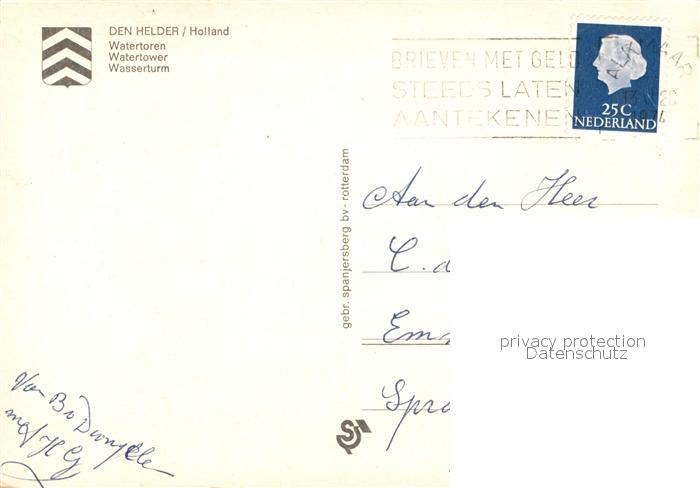 DEN HELDER / Holland
Watertoren
Watertower
Wasserturm
BRIEVEN MET GELD
STEEDS LATEN
AANTEKENEN
ALKMAAR
1974
25C
NEDERLAND
gebr. spanjersberg bv - rotterdam
Aan den Heer
C. d
Em
Spr
privacy protection
Datenschutz
Van B
met H G